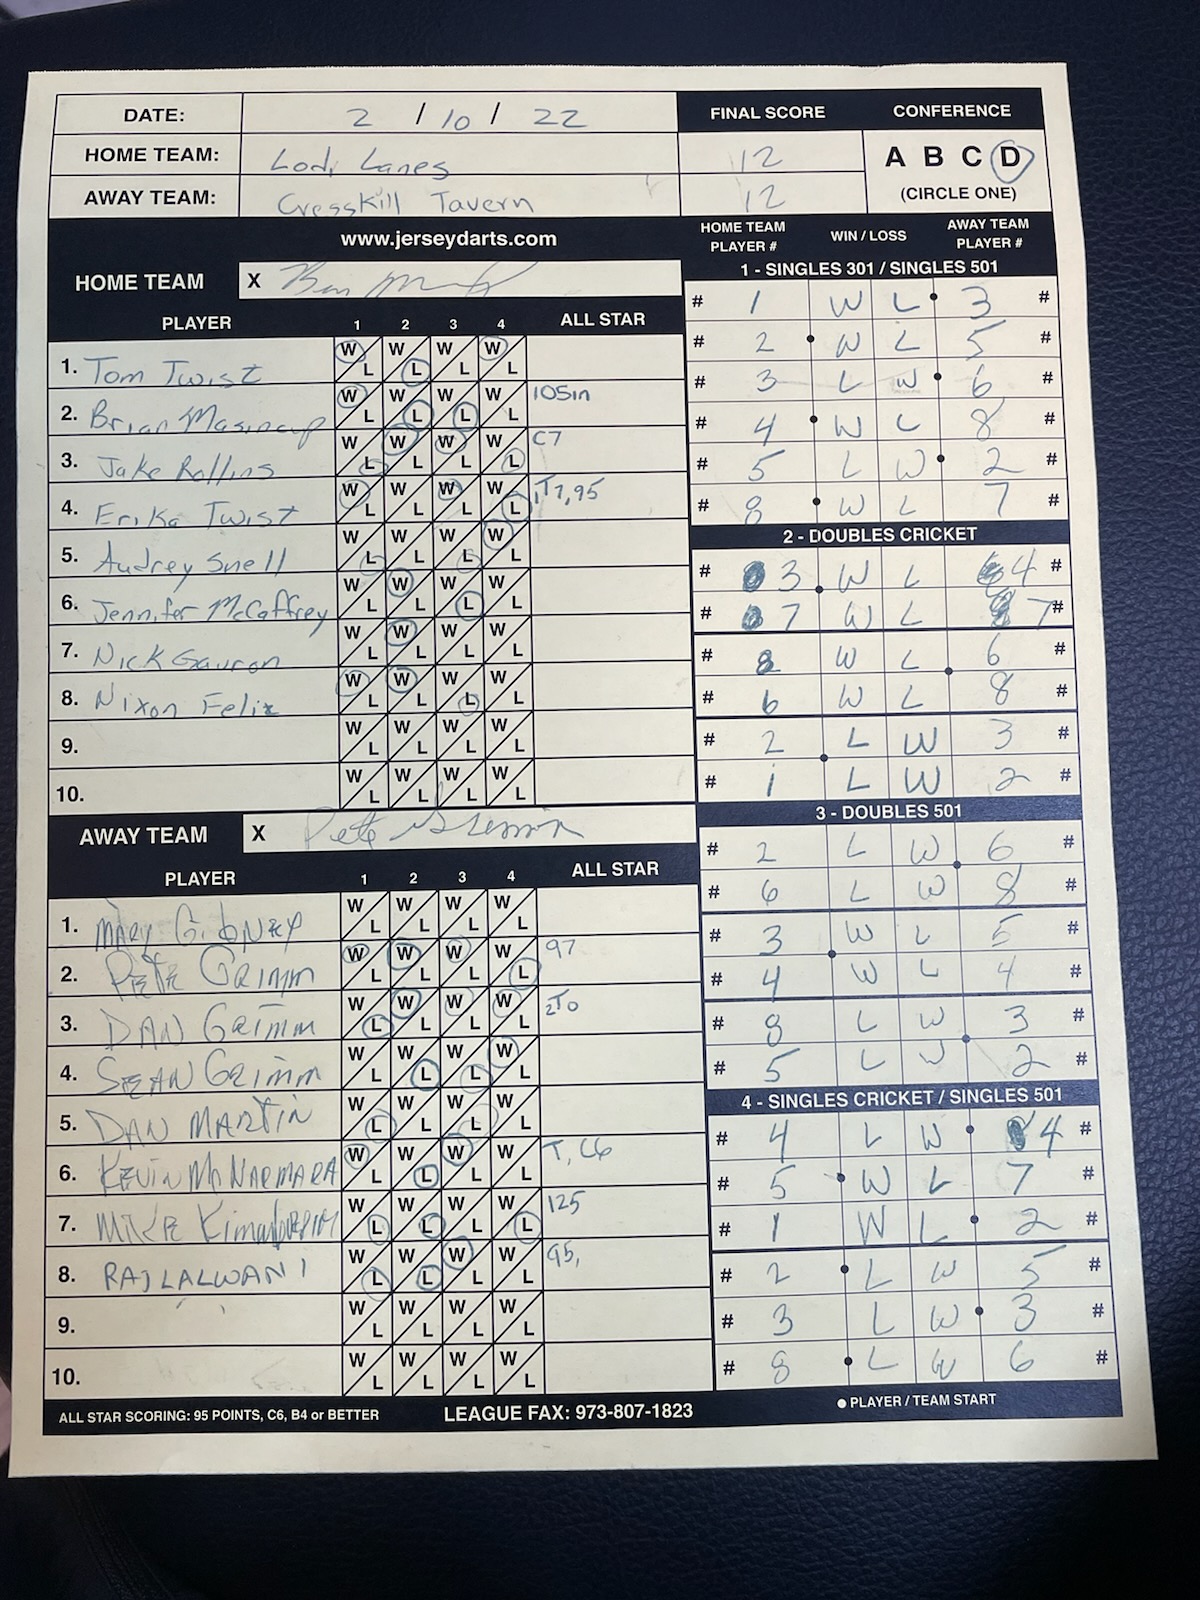 DATE: 2 / 10 / 22
FINAL SCORE
CONFERENCE
HOME TEAM: Lodi Lanes
12
A B C D
AWAY TEAM: Cresskill Tavern
12
(CIRCLE ONE)
www.jerseydarts.com
HOME TEAM PLAYER # WIN / LOSS AWAY TEAM PLAYER #
HOME TEAM X
PLAYER 1 2 3 4 ALL STAR
1. Tom Twist W L W L W L W L
2. Brian W L W L W L W L 105in
3. Jake Rollins W L W L W L W L C7
4. Erika Twist W L W L W L W L 1T7,95
5. Audrey Snell W L W L W L W L
6. Jennifer McCaffrey W L W L W L W L
7. Nick Gavron W L W L W L W L
8. Nixon Felix W L W L W L W L
9. W L W L W L W L
10. W L W L W L W L
AWAY TEAM X Pete
PLAYER 1 2 3 4 ALL STAR
1. MARY GIBNEY W L W L W L W L
2. PETE GRIMM W L W L W L W L 97
3. DAN GRIMM W L W L W L W L 2T0
4. SEAN GRIMM W L W L W L W L
5. DAN MARTIN W L W L W L W L
6. KEVIN McNARMARA W L W L W L W L T, C6
7. MIKE W L W L W L W L 125
8. RAJ LALWANI W L W L W L W L 95,
9. W L W L W L W L
10. W L W L W L W L
1 - SINGLES 301 / SINGLES 501
# 1 W L 3 #
# 2 W L 5 #
# 3 L W 6 #
# 4 W L 8 #
# 5 L W 2 #
# 8 W L 7 #
2 - DOUBLES CRICKET
# 3 W L 4 #
# 7 W L 7 #
# 8 W L 6 #
# 6 W L 8 #
# 2 L W 3 #
# 1 L W 2 #
3 - DOUBLES 501
# 2 L W 6 #
# 6 L W 8 #
# 3 W L 5 #
# 4 W L 4 #
# 8 L W 3 #
# 5 L W 2 #
4 - SINGLES CRICKET / SINGLES 501
# 4 L W 4 #
# 5 W L 7 #
# 1 W L 2 #
# 2 L W 5 #
# 3 L W 3 #
# 8 L W 6 #
ALL STAR SCORING: 95 POINTS, C6, B4 or BETTER
LEAGUE FAX: 973-807-1823
PLAYER / TEAM START